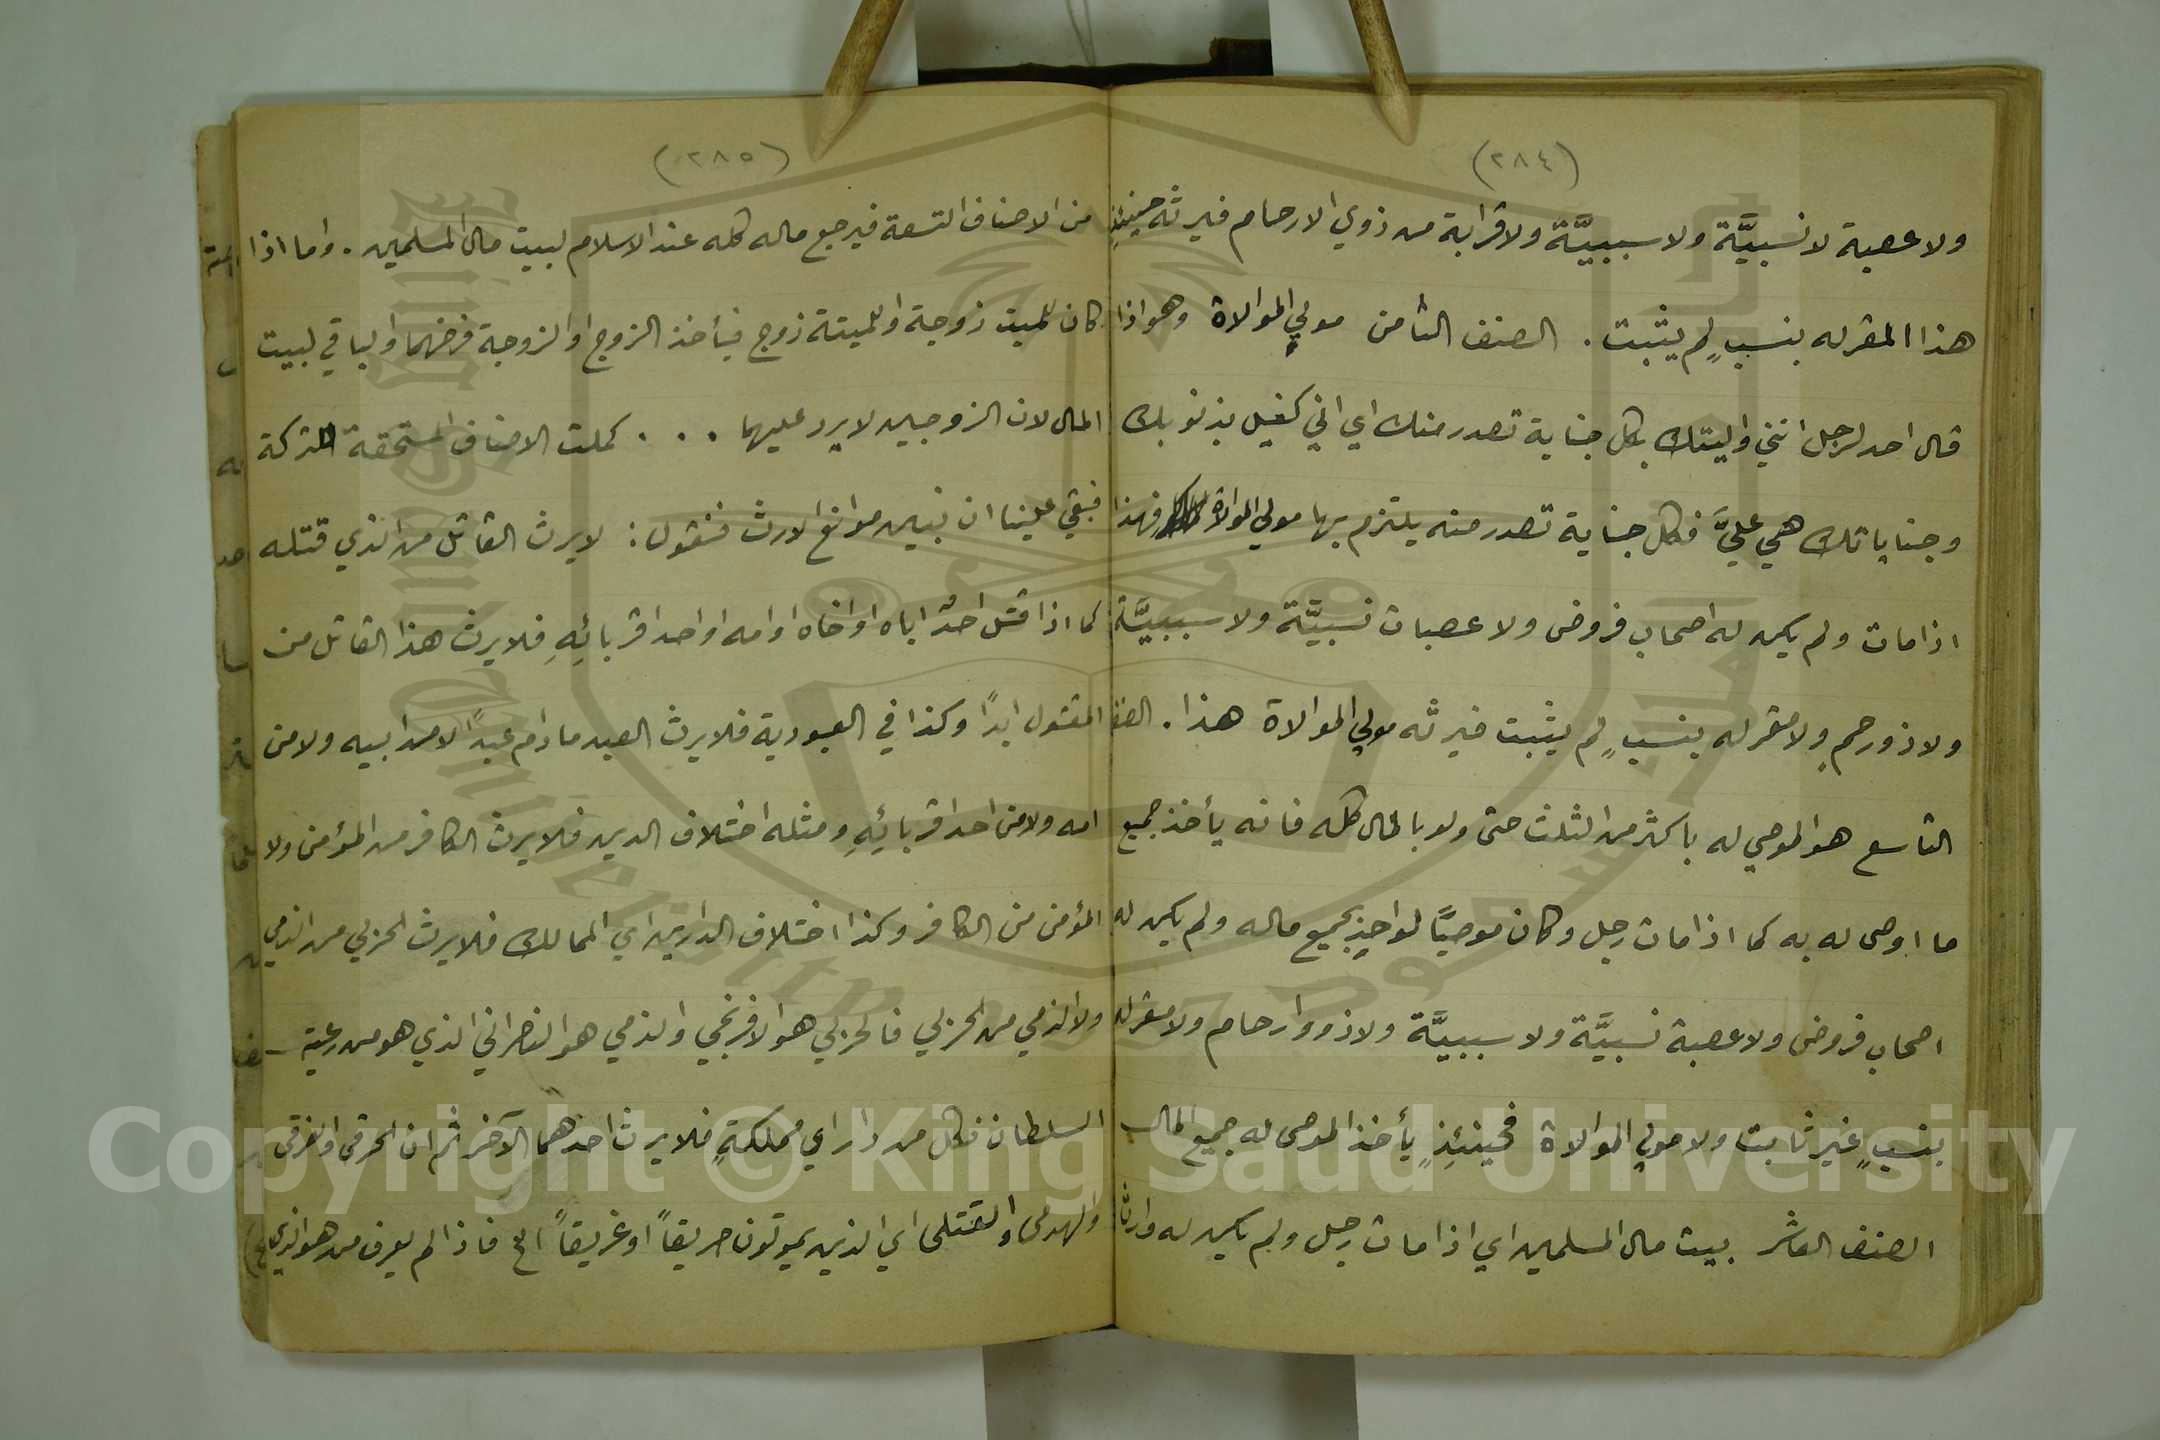 (٢٨٤)
ولا عصبة لا نسبيَّة ولا سببيَّة ولا قرابة من ذوي الارحام فيرثه حينئذٍ
هذا المقر له بنسبٍ لم يثبت . الصنف الثامن مولي الموالاة وهو اذا
قال احد لرجل انني واليتك بكل جناية تصدر منك اي اني كفيل بذنوبك
وجناياتك هي عليَّ فكل جناية تصدر منه يلتزم بها مولي الموالاة فهذا
اذا مات ولم يكن له اصحاب فروض ولا عصبات نسبيَّة ولا سببيَّة
ولا ذو رحمٍ ولا مقر له بنسبٍ لم يثبت فيرثه مولي الموالاة هذا . الصنف
التاسع هو الموصي له باكثر من الثلث حتى ولو بالمال كله فانه يأخذ جميع
ما اوصى له به كما اذا مات رجل وكان موصيًا لواحدٍ بجميع ماله ولم يكن له
اصحاب فروض ولا عصبة نسبيَّة ولا سببيَّة ولا ذووا رحام ولا مقر له
بنسبٍ غير ثابت ولا مولي الموالاة فحينئذٍ يأخذ الموصى له جميع المال
الصنف العاشر بيت مال المسلمين اي اذا مات رجل ولم يكن له وارثا
(٢٨٥)
من الاصناف التسعة فيرجع ماله كله عند الاسلام لبيت مال المسلمين . واما اذا
كان للميت زوجة او للميتة زوج فيأخذ الزوج او الزوجة فرضهما والباقي لبيت
المال لان الزوجين لا يرد عليهما . . . كملت الاصناف المستحقة التركة
فبقي علينا ان نبين موانع الارث فنقول : لا يرث القاتل من الذي قتله
كما اذا قتل احدٌ اباه او اخاه او امه او احد اقربائِهِ فلا يرث هذا القاتل من
المقتول ابدًا وكذا في العبودية فلا يرث العبد ما دام عبدًا لا من ابيه ولا من
امه ولا من احد اقربائِهِ ومثله اختلاف الدين فلا يرث الكافر من المؤمن ولا
المؤمن من الكافر وكذا اختلاف الدارين اي الممالك فلا يرث الحربي من الذمي
ولا الذمي من الحربي فالحربي هو الافرنجي والذمي هو النصراني الذي هو من رعية
السلطان فكل من دار اي مملكةٍ فلا يرث احدهما الآخر ثم ان الحرقى والغرقى
والهدمى والقتلى اي الذين يموتون حريقاً او غريقاً الخ فاذا لم يعرف من هو الذي
Copyright © King Saud University
King Saud University